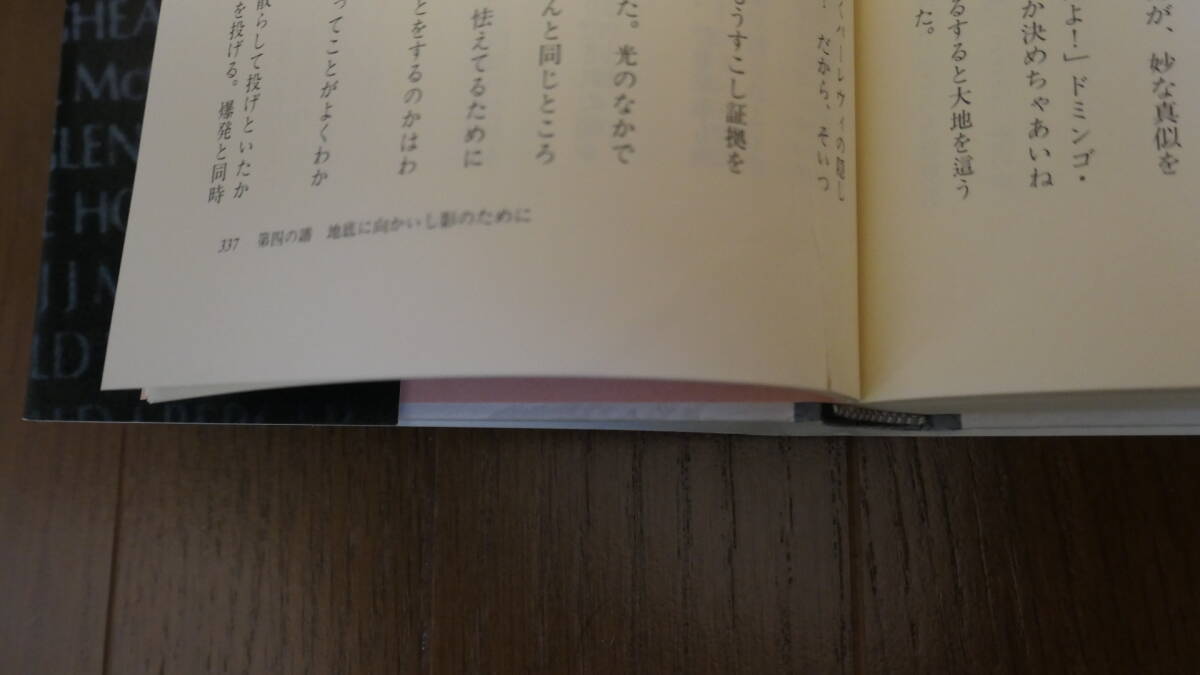 が、妙な真似を
よ!」ドミンゴ・
か決めちゃあいね
るすると大地を這う
た。
だから、そいつ
もうすこし証拠を
た。光のなかで
んと同じところ
怯えてるために
とをするのかはわ
ってことがよくわか
散らして投げといたか
を投げる。爆発と同時
337 第四の譜 地底に向かいし影のために
GHEA
Mc
GLEN
HO
JJM
LD